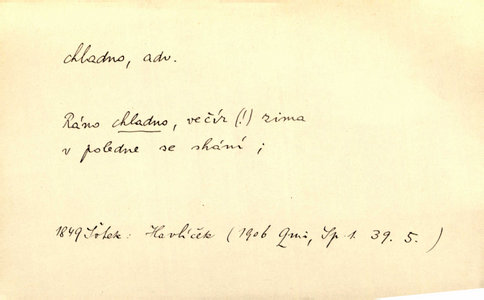 chladno, adv.
Ráno chladno, večír (!) zima
v poledne se shání ;
1849 Šotek: Havlíček (1906 Qui, Sp 1. 39. 5. )